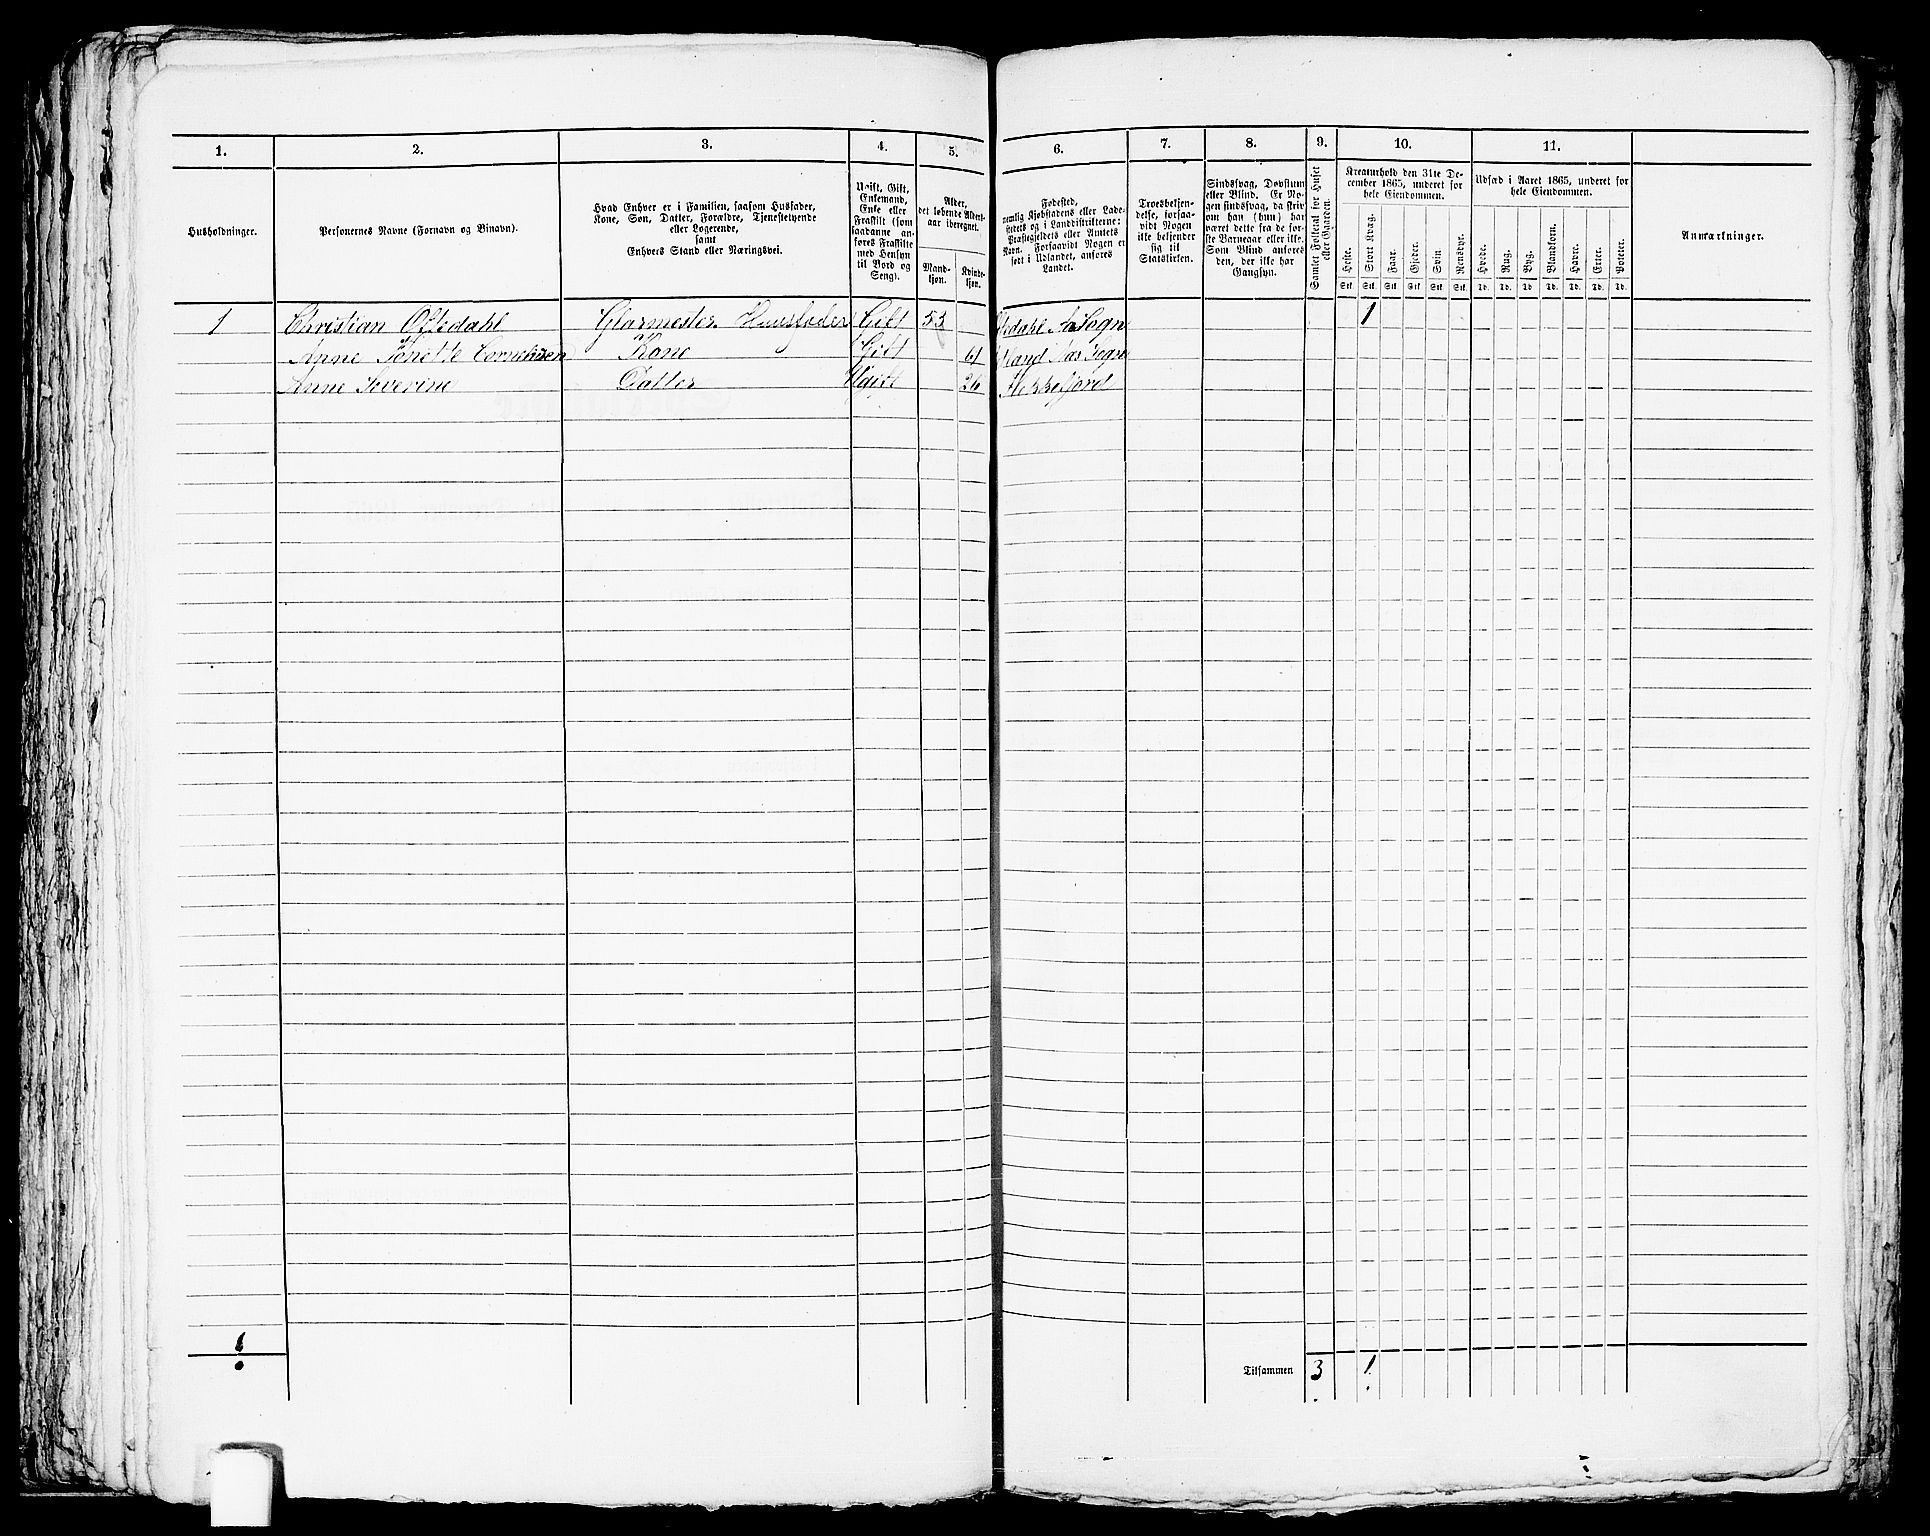 1. 2. 3. 4. 5. 6. 7. 8. 9. 10. 11.
Husholdninger.
Personernes Navne (Fornavn og Binavn).
Hvad Enhver er i Familien, saasom Husfader,
Kone, Søn, Datter, Forældre, Tjenestetyende
eller Logerende,
samt
Enhvers Stand eller Næringsvei.
Ugift, Gift,
Enkemand,
Enke eller
Fraskilt (som
saadanne an-
føres Fraskilte
med Hensyn
til Bord og
Seng).
Alder,
det løbende Alders-
aar iberegnet.
Mand-
kjøn.
Kvinde-
kjøn.
Fødested,
nemlig Kjøbstadens eller Lade-
stedets og i Landdistrikterne:
Præstegjeldets eller Amtets
Navn. Forsaavidt Nogen er
født i Udlandet, anføres
Landet.
Troesbekjen-
delse, forsaa-
vidt Nogen
ikke bekjender
sig til
Statskirken.
Sindssvag, Døvstum
eller Blind. Er No-
gen sindssvag, da skriv
om han (hun) har
været dette fra de før-
ste Barneaar eller ikke.
Som Blind anføres
den, der ikke har
Gangsyn.
Samlet Folketal for Huset
eller Gaarden.
Kreaturhold den 31te De-
cember 1865, underet for
hele Eiendommen.
Heste. Stort Kvæg. Faar. Gjeder. Svin. Rensdyr.
Stk. Stk. Stk. Stk. Stk. Stk.
Udsæd i Aaret 1865, underet for
hele Eiendommen.
Hvede. Rug. Byg. Blandkorn. Havre. Erter. Poteter.
Td. Td. Td. Td. Td. Td. Td.
Anmærkninger.
1 Christian Oftedahl Glarmester Huusfader Gift 53 Sogn 1
Anne Tonette Cornelius­en Kone Gift 61 Sogn
Anne Severine Datter Ugift 26 Flekkefjord
1
Tilsammen 3 1